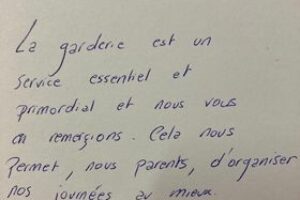 La garderie est un
service essentiel et
primordial et nous vous
en remerçions. Cela nous
permet, nous parents, d'organiser
nos journées au mieux.